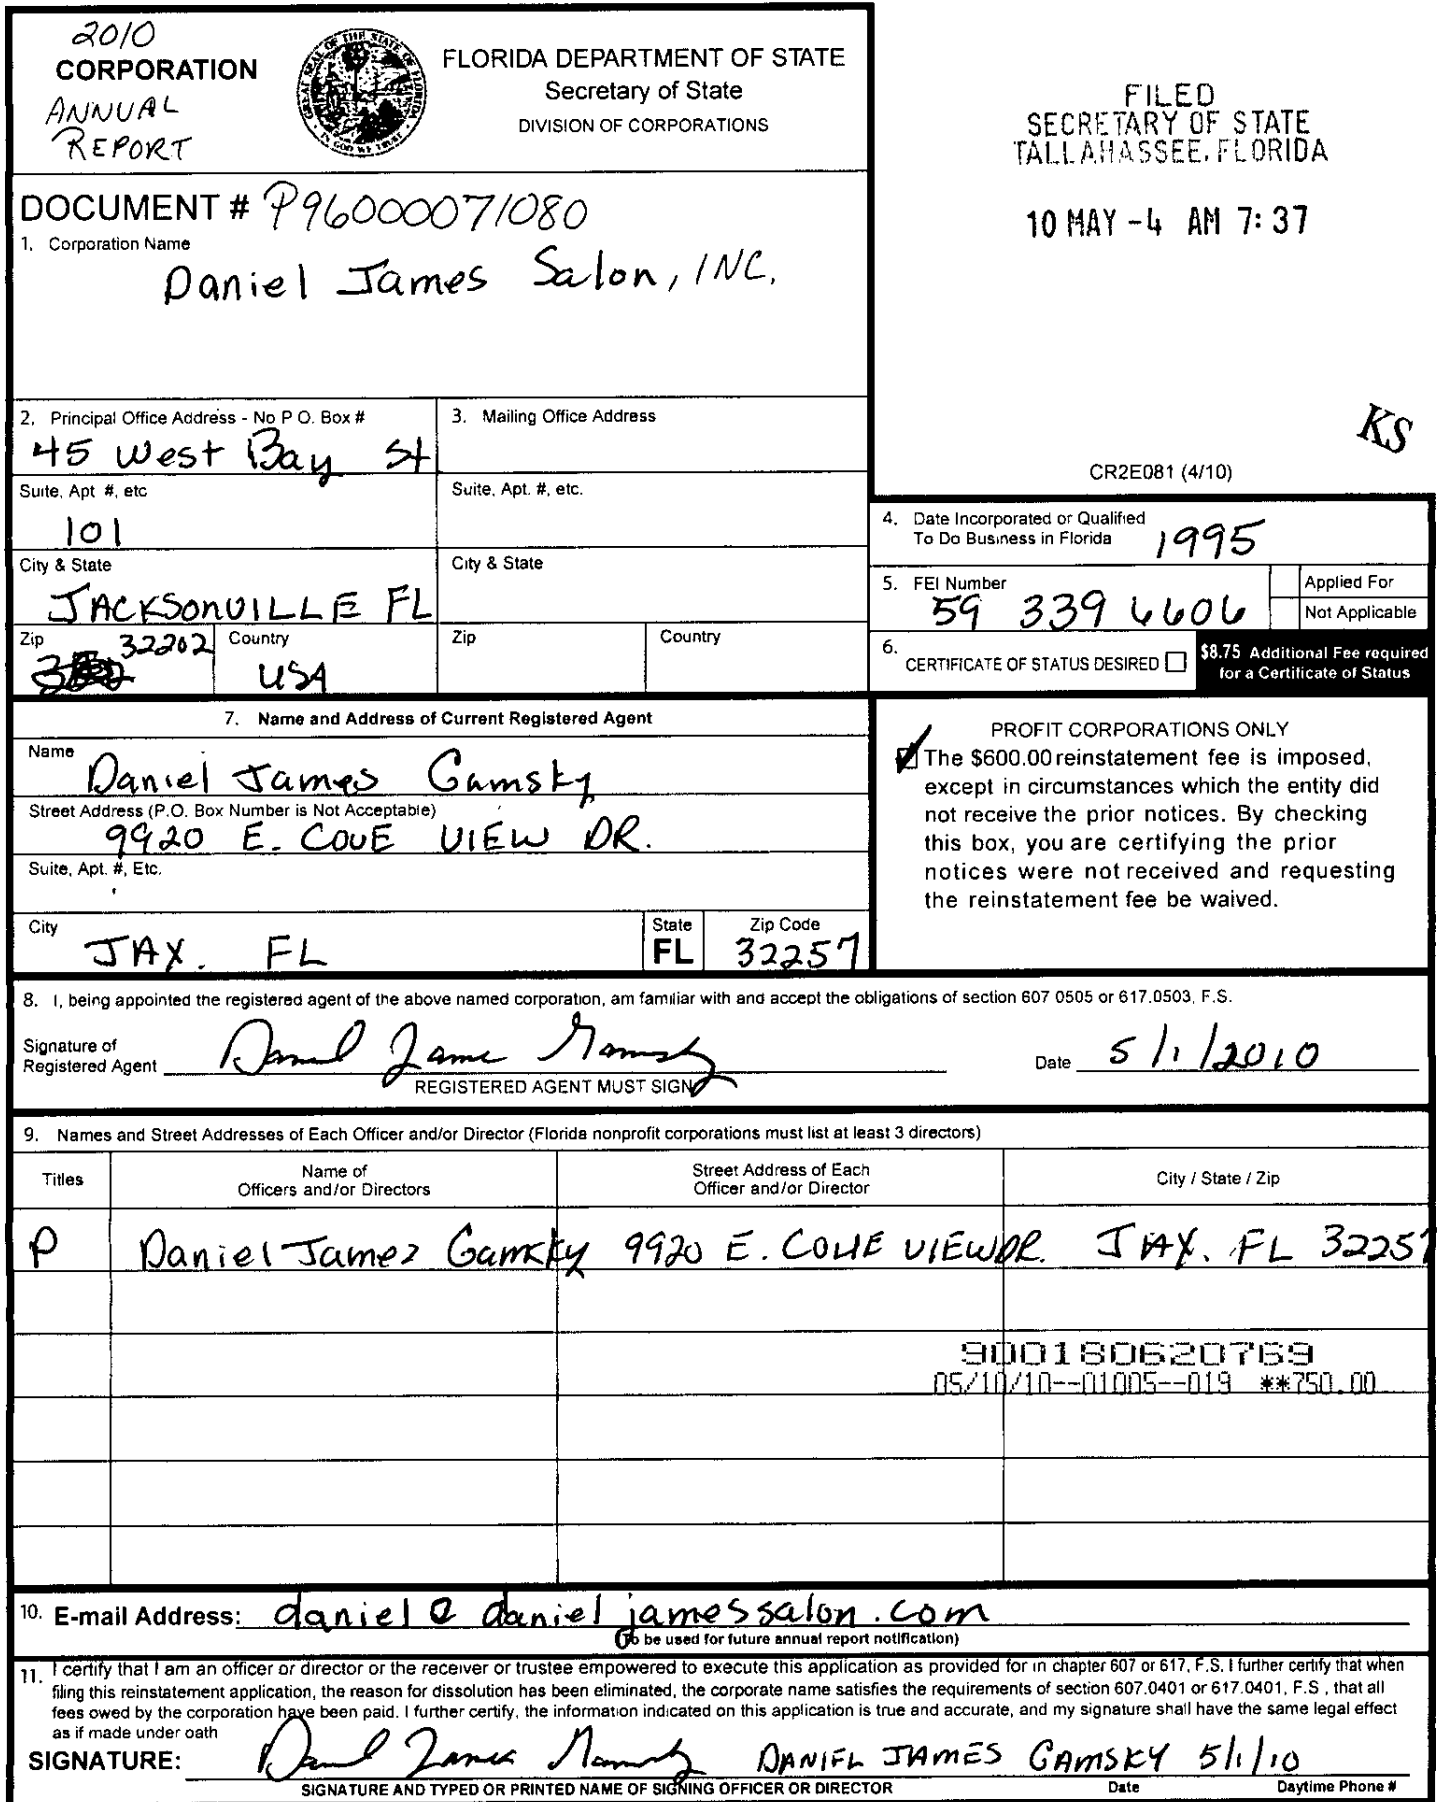 2010
CORPORATION
ANNUAL
REPORT
FLORIDA DEPARTMENT OF STATE
Secretary of State
DIVISION OF CORPORATIONS
FILED
SECRETARY OF STATE
TALLAHASSEE, FLORIDA
10 MAY -4 AM 7:37
DOCUMENT # P96000071080
1. Corporation Name
Daniel James Salon, INC.
KS
CR2E081 (4/10)
2. Principal Office Address - No P O. Box #
45 West Bay St
3. Mailing Office Address
Suite, Apt #, etc
101
Suite, Apt. #, etc.
City & State
JACKSONVILLE FL
City & State
Zip 32202
Country
USA
Zip
Country
4. Date Incorporated or Qualified
To Do Business in Florida 1995
5. FEI Number
59 339 6606
Applied For
Not Applicable
6. CERTIFICATE OF STATUS DESIRED
$8.75 Additional Fee required
for a Certificate of Status
7. Name and Address of Current Registered Agent
Name
Daniel James Gamsky
Street Address (P.O. Box Number is Not Acceptable)
9920 E. COVE VIEW DR.
Suite, Apt. #, Etc.
City
JAX. FL
State
FL
Zip Code
32257
PROFIT CORPORATIONS ONLY
The $600.00 reinstatement fee is imposed,
except in circumstances which the entity did
not receive the prior notices. By checking
this box, you are certifying the prior
notices were not received and requesting
the reinstatement fee be waived.
8. I, being appointed the registered agent of the above named corporation, am familiar with and accept the obligations of section 607 0505 or 617.0503, F.S.
Signature of
Registered Agent Daniel James Gamsky
REGISTERED AGENT MUST SIGN
Date 5/1/2010
9. Names and Street Addresses of Each Officer and/or Director (Florida nonprofit corporations must list at least 3 directors)
Titles
Name of
Officers and/or Directors
Street Address of Each
Officer and/or Director
City / State / Zip
P Daniel James Gamsky 9920 E. COVE VIEW DR. JAX. FL 32257
900180620769
05/10/10--01005--019 **750.00
10. E-mail Address: daniel@danieljamessalon.com
(To be used for future annual report notification)
11. I certify that I am an officer or director or the receiver or trustee empowered to execute this application as provided for in chapter 607 or 617, F.S. I further certify that when
filing this reinstatement application, the reason for dissolution has been eliminated, the corporate name satisfies the requirements of section 607.0401 or 617.0401, F.S , that all
fees owed by the corporation have been paid. I further certify, the information indicated on this application is true and accurate, and my signature shall have the same legal effect
as if made under oath
SIGNATURE: Daniel James Gamsky DANIEL JAMES GAMSKY 5/1/10
SIGNATURE AND TYPED OR PRINTED NAME OF SIGNING OFFICER OR DIRECTOR
Date
Daytime Phone #